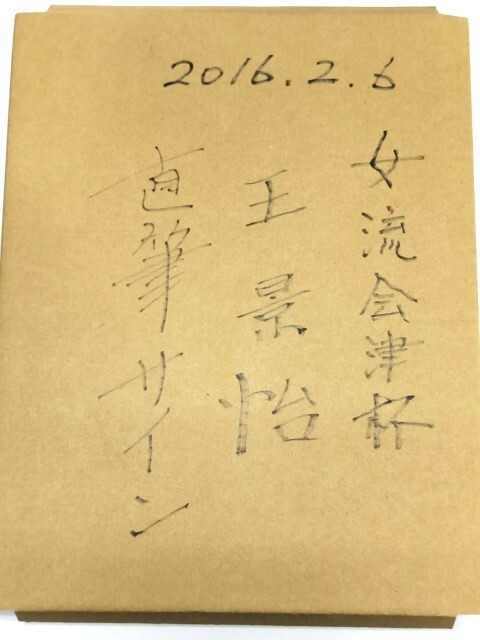 2016.2.6
女流会津杯
王景怡
直筆サイン